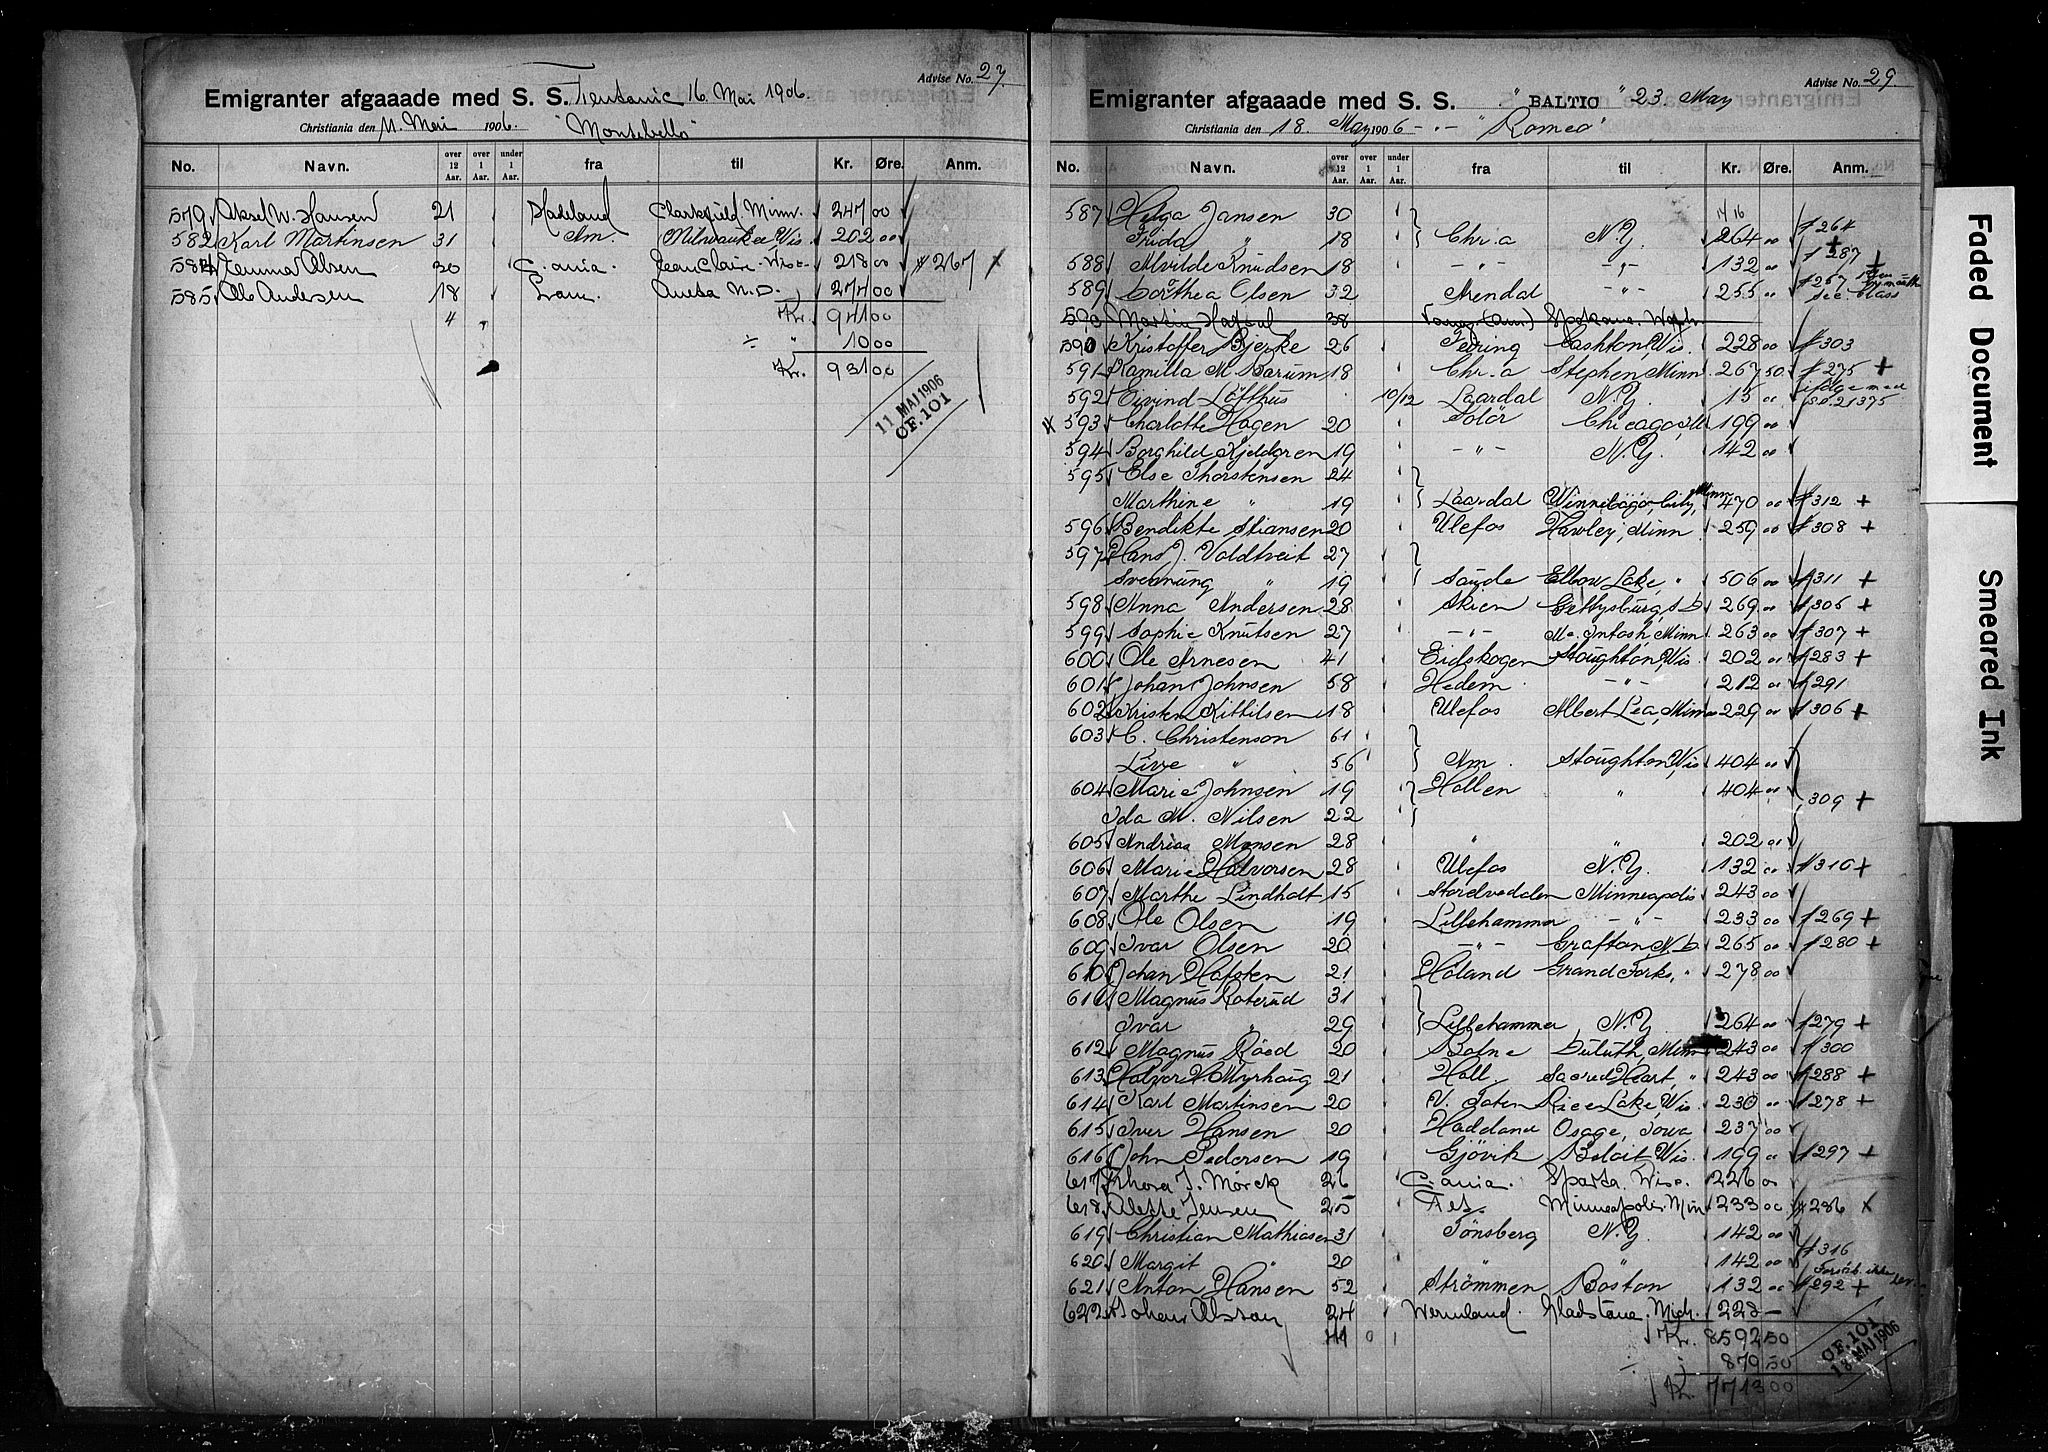 Advise No. 27.
Emigranter afgaaade med S. S. Teutonic 16. Mai 1906.
Christiania den 11. Mai 1906. "Montebello"
No. Navn. over 12 Aar. over 1 Aar. under 1 Aar. fra til Kr. Øre. Anm.
579 Aksel W. Hansen 21 Hadeland Clarkfield Minn. 247 00
582 Karl Martinsen 31 Am. Milwaukee Wis. 202 00
584 Emma Olsen 30 C.ania. Eau Claire. Wisc. 218 00 # 267 X
585 Ole Andersen 18 Gran. Aneta N.D. 274 00
4 Kr. 941 00
÷ " 10 00
Kr. 931 00
11 MAI 1906
OF. 101
Advise No. 29.
Emigranter afgaaade med S. S. "BALTIC" 23. May
Christiania den 18. May 1906 - " - "Romeo"
No. Navn. over 12 Aar. over 1 Aar. under 1 Aar. fra til Kr. Øre. Anm.
587 Helga Jansen 30
Frida " 18 Chr.a N.Y. 264 00 # 264 +
588 Mvilde Knudsen 18 - " - - " - 132 00 # 287 +
589 Dorthea Olsen 32 Arendal - " - 255 " # 267 sec. class
590 Martin 38 (Am.) Spokane. Wash.
590 Kristoffer Bjerke 26 Cashton, Wis. 228 00 # 303
591 Kamilla M. Barum 18 Chr.a Stephen, Minn 267 50 # 275 +
592 Eivind Löfthus 10/12 Laardal N.Y. 15 00 ifölge med S.O. 21375
# 593 Charlotte Hagen 20 Solör Chicago, Ill 199 00
594 Borghild Kjeldgren 19 - " - N.Y. 142 00
595 Else Thorstensen 24
Marthine " 19 Laardal Winnebago City, Minn 470 00 # 312 +
596 Bendikte Stiansen 20 Ulefos Hawley, Minn 259 00 # 308 +
597 Hans J. Voldtveit 27
Svenung " 19 Saude Elbow Lake, " 506 00 # 311 +
598 Anna Andersen 28 Skien Gettysburg, S.D. 269 00 # 305 +
599 Sophie Knutsen 27 - " - Mc. Intosh, Minn 263 00 # 307 +
600 Ole Arnesen 41 Eidskogen Stoughton, Wis. 202 00 # 283 +
601 Johan Johnsen 58 Hedem. - " - 212 00 # 291
602 Kristen Kittilsen 18 Ulefos Albert Lea, Minn 229 00 # 306 +
603 C. Christenson 61
Live " 56 Am. Stoughton, Wis 404 00
604 Marie Johnsen 19 Hollen " 404 00 309 +
Ida M. Nilsen 22
605 Andrias Monsen 28 " " 202 00
606 Marie Halvorsen 28 Ulefos N.Y. 132 00 # 310 +
607 Marthe Lindholt 15 Minneapolis 243 00
608 Ole Olsen 19 Lillehammer - " - 233 00 # 269 +
609 Ivar Olsen 20 - " - Grafton, N.D. 265 00 # 280 +
610 Johan Hofsten 21 Höland Grand Forks, " 278 00
611 Magnus Roterud 31
Ivar " 29 Lillehammer N.Y. 264 00 # 279 +
612 Magnus Röed 20 Botne Duluth, Minn 243 00 # 300
613 Halvor N. Myrhaug 21 Holl Sacred Heart, " 243 00 # 288 +
614 Karl Martinsen 20 V. Toten Rice Lake, Wis. 230 00 # 278 +
615 Iver Hansen 20 Hadeland Osage, Iowa 237 00
616 John Pedersen 19 Gjövik Beloit, Wis. 199 00 # 297 +
617 Thora J. Mörck 26 C.ania. Sparta. Wisc. 226 00
618 Alette Jensen 25 Fet. Minneapolis. Min 233 00 # 286 X
619 Christian Mathiasen 31 Tönsberg N.Y. 142 00
620 Margit " 20 " " 142 00 # 316
621 Anton Hansen 52 Strömmen Boston 132 00 # 292 +
622 Johan Olsson 24 Wermland. Gladstone. Mich. 228 -
44 0 1 Kr. 8592 50
÷ " 879 50
Kr. 7713 00
OF. 101
18 MAI 1906
Faded Document
Smeared Ink